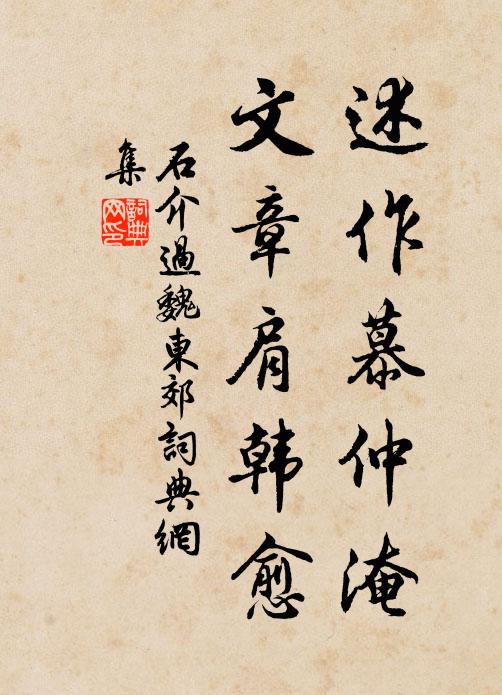 述作慕仲淹
文章肩韩愈
石介過魏東郊詞典網
集
詞典
网印